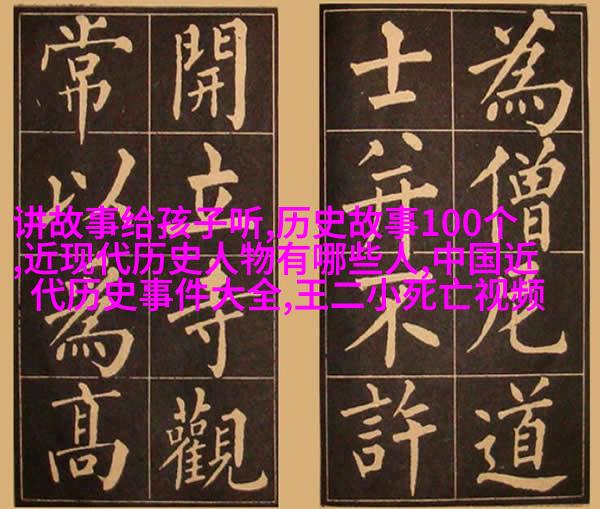 為僧尼道
士并不許
開立寺觀
常以為高
讲故事给孩子听,历史故事100个
,近现代历史人物有哪些人,中国近
代历史事件大全,王二小死亡视频